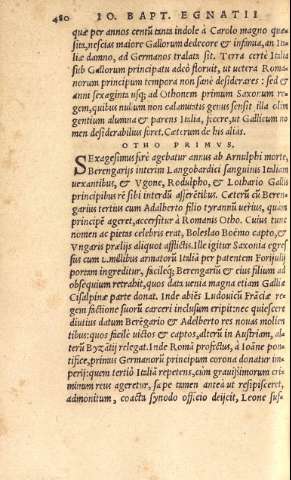 480 IO. BAPT. EGNATII
quæ per annos centũ tanta indole à Carolo magno quæ-
sita, nescias maiore Gallorum dedecore & infamia, an Ita
liæ damno, ad Germanos tralata sit. Terra certè Italia
sub Gallorum principatu adeò floruit, ut uetera Roma-
norum principum tempora non sanè desiderares: sed &
anni sexaginta usq; ad Othonem primum Saxorum re-
gem, quibus nullum non calamitatis genus sensit illa olim
gentium alumna & parens Italia, fecere, ut Gallicum no
men desiderabilius foret. Cæterum de his alias.
OTHO PRIMVS,
SExagesimus ferè agebatur annus ab Arnulphi morte,
Berengarijs interim Langobardici sanguinis Italiam
uexantibus, & Vgone, Rodulpho, & Lothario Gallis
principibus rẽ sibi interdũ asserẽtibus. Cæterũ cũ Beren-
garius tertius cum Adalberto filio tyranni uerius, quàm
principẽ ageret, accersitur à Romanis Otho. Cuius tunc
nomen ac pietas celebris erat, Boleslao Boẽmo capto, &
Vngaris prælijs aliquot afflictis. Ille igitur Saxonia egres
sus cum L. millibus armatorũ Italiã per patentem Foriiulij
portam ingreditur, facileq; Berengariũ & eius filium ad
obsequium retrahit, quos data uenia magna etiam Galliæ
Cisalpinæ parte donat. Inde abiẽs Ludouici Frãciæ re-
gem factione suorũ carceri inclusum eripit: nec quiescere
diutius datum Berẽgario & Adalberto res nouas molien
tibus: quos facilè uictos & captos, alterũ in Austriam, al-
terũ Byzãtij relegat. Inde Romã profectus, à Ioãne pon-
tifice, primus Germanorũ principum corona donatur im-
perij: quem tertiò Italiã repetens, cùm grauissimorum cri-
minum reus ageretur, sæpe tamen antea ut resipisceret,
admonitum, coacta synodo officio deijcit, Leone suf-